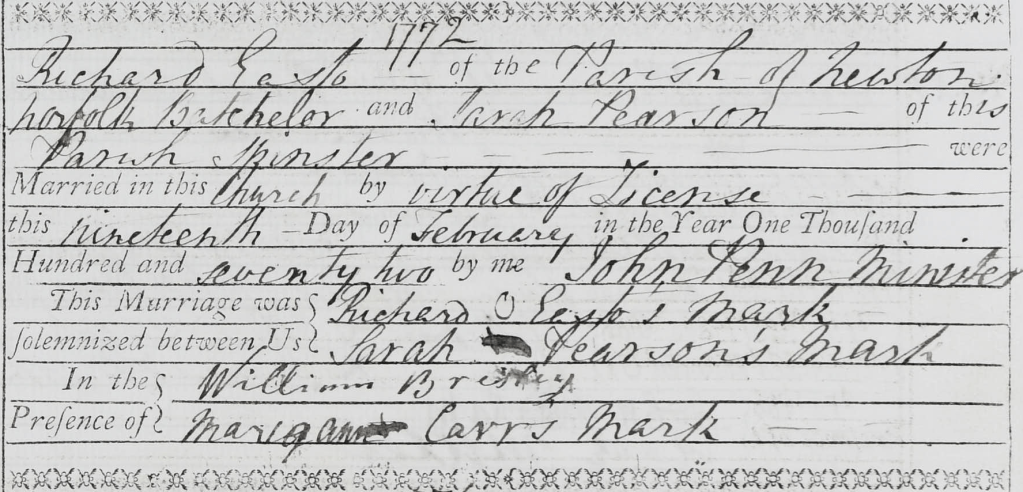 1772
Richard Easto of the Parish of Newton
Norfolk Batchelor and Sarah Pearson of this
Parish Spinster were
Married in this Church by virtue of License
this nineteenth Day of February in the Year One Thouſand
Hundred and seventy two by me John Penn Minister
This Marriage was Richard O Easto's Mark
ſolemnized between Us Sarah Pearson's Mark
In the William
Preſence of Carr's Mark